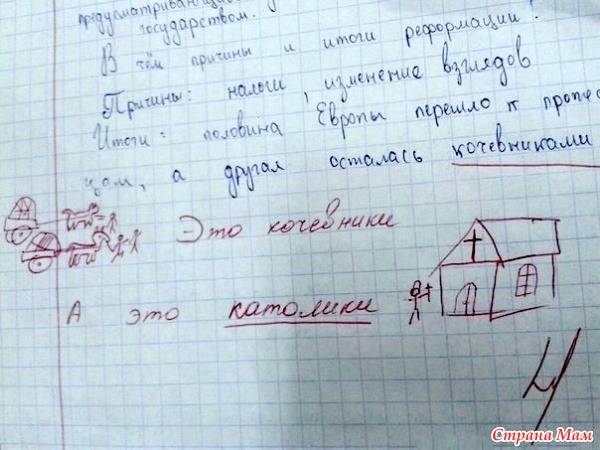 предусматривающ
государством.
В чём причины и итоги реформации?
Причины: налоги, изменение взглядов
Итоги: половина Европы перешло к протес
цам, а другая осталась кочевниками
Это кочевники
А это католики
4
Страна Мам